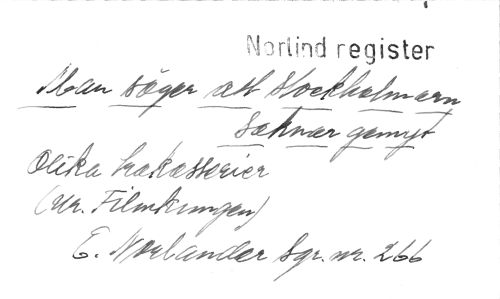 Norlind register
Man säger att Stockholmarn
saknar gemyt
Olika trakasserier
(Ur. Filmkungen)
E. Norlander Sgr. nr. 266